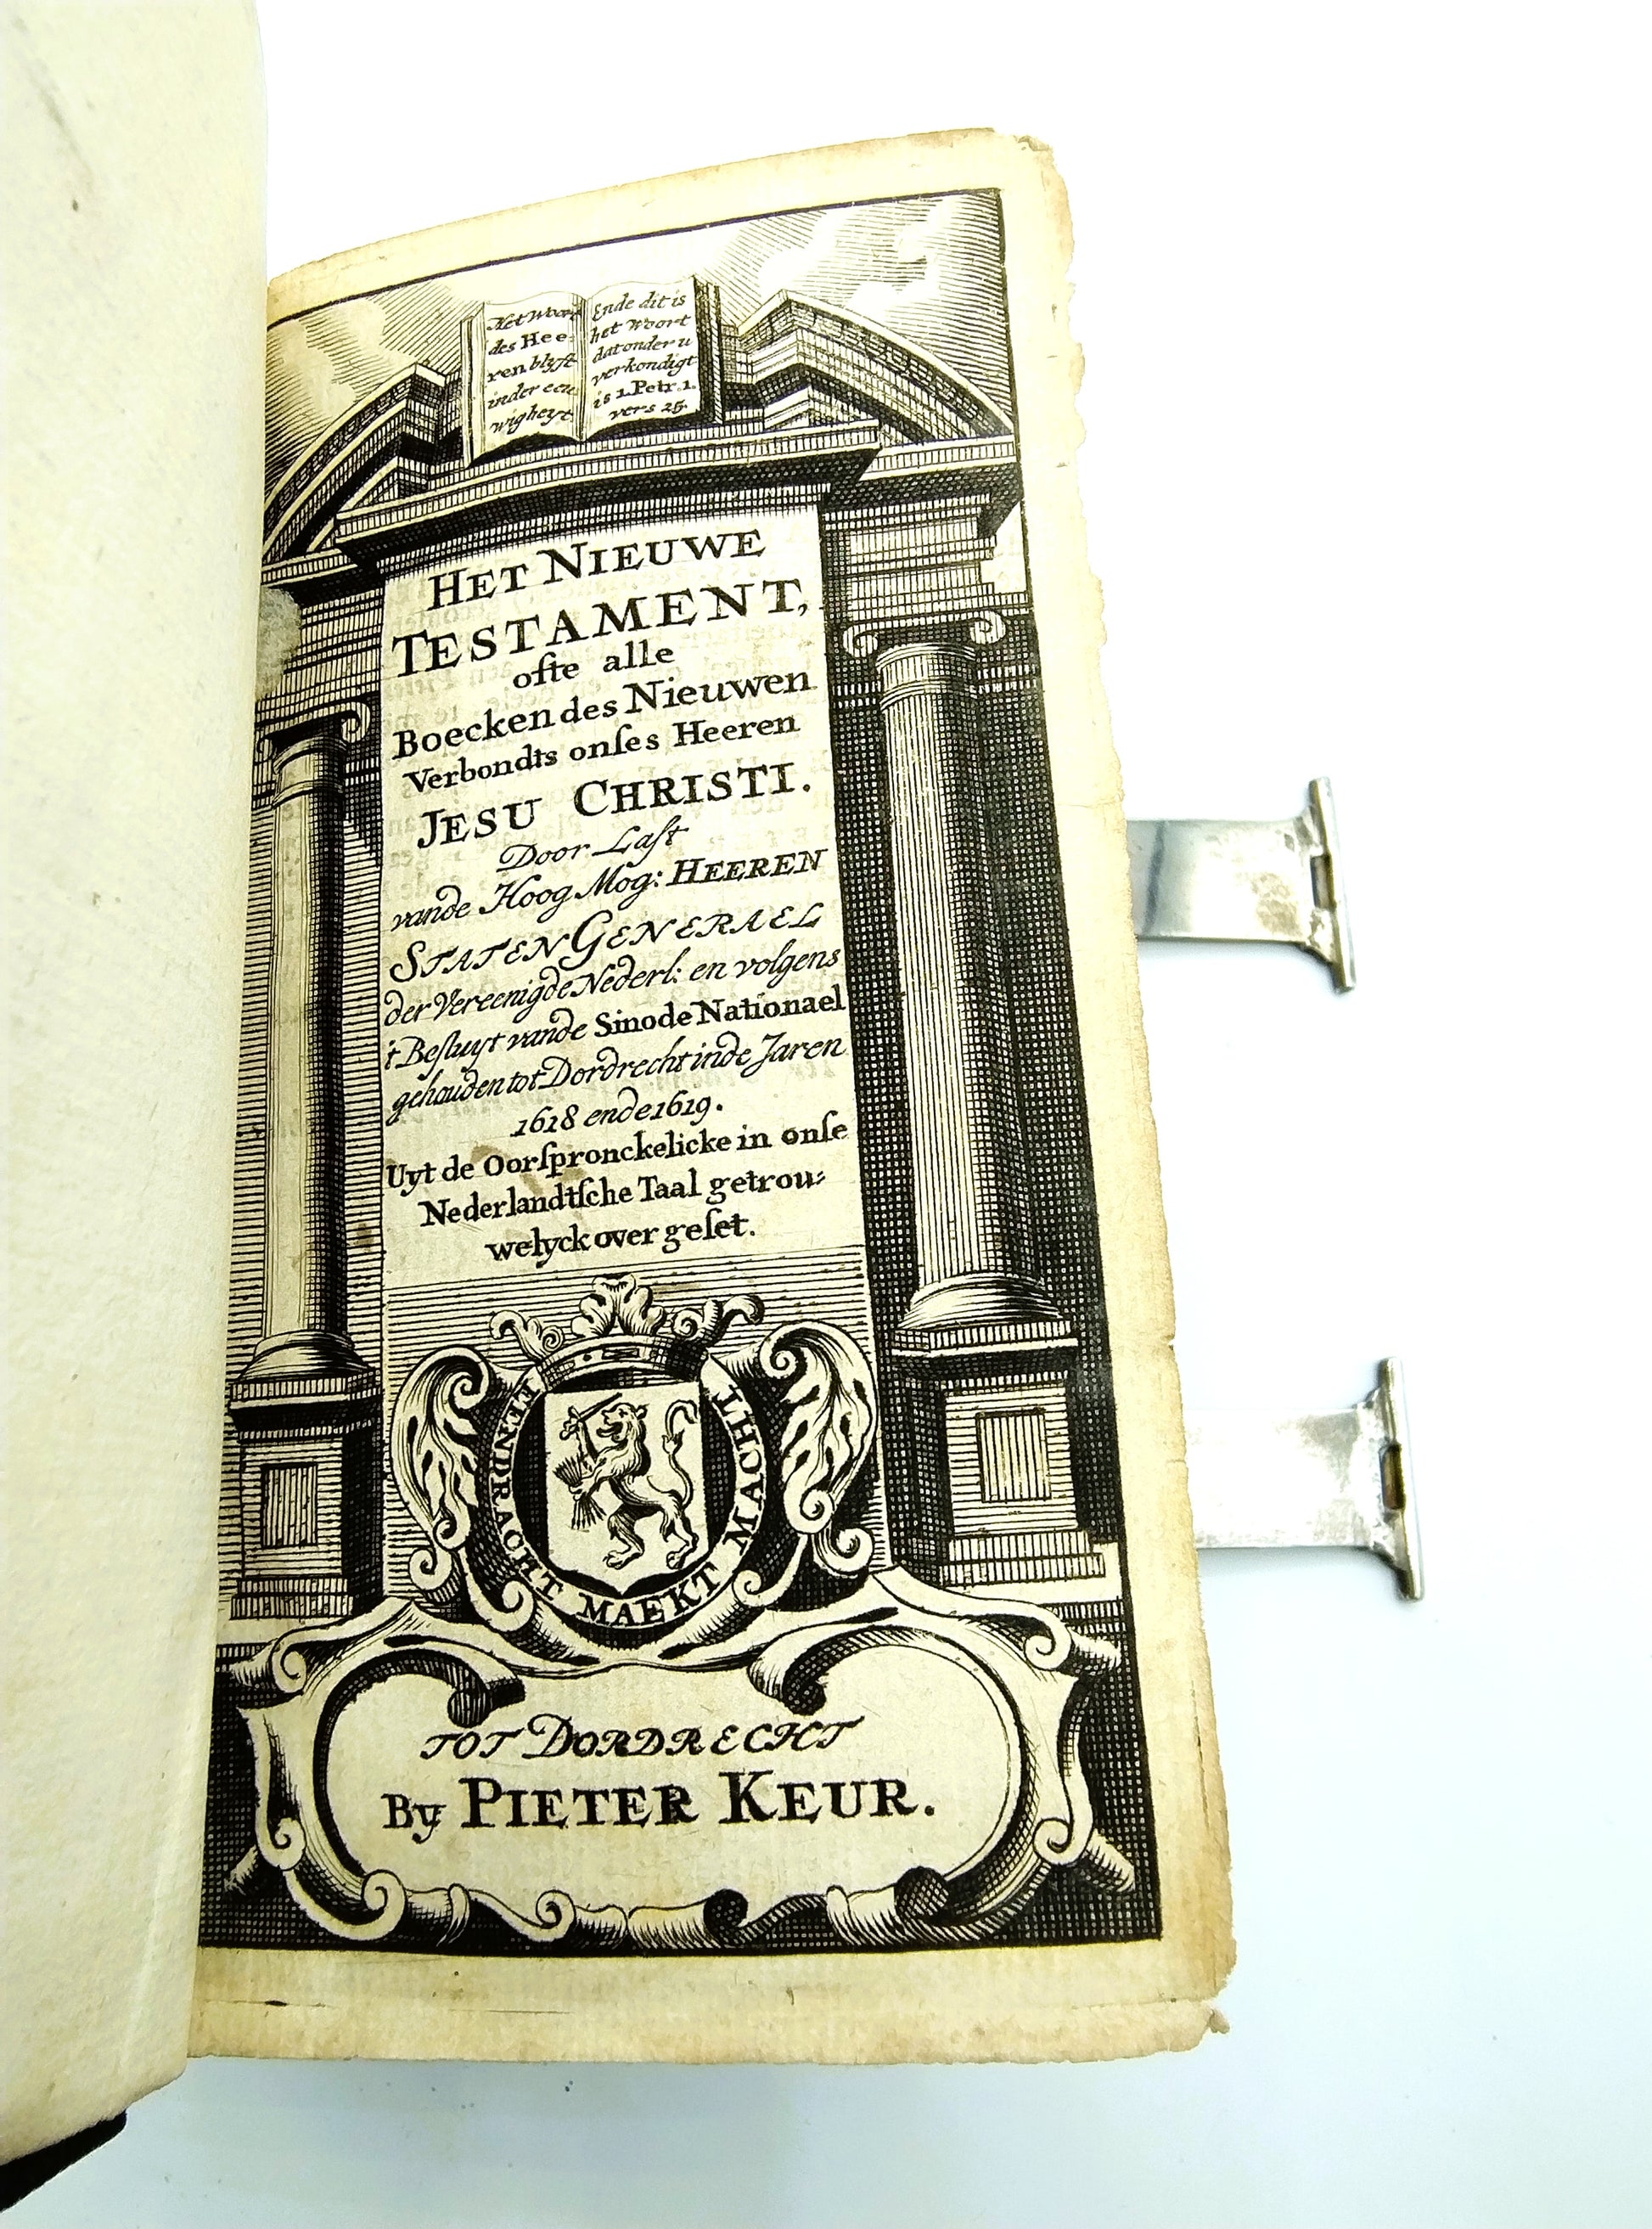 Het Woort
des Hee-
ren blyft
in der eeu
wigheyt
Ende dit is
het Woort
dat onder u
verkondigt
is 1. Petr. 1.
vers 25.
HET NIEUWE
TESTAMENT,
ofte alle
Boecken des Nieuwen
Verbondts onſes Heeren
JESU CHRISTI.
Door Laſt
vande Hoog Mog: HEEREN
STATEN GENERAEL
der Vereenigde Nederl: en volgens
't Beſluyt vande Sinode Nationael
gehouden tot Dordrecht inde Jaren
1618 ende 1619.
Uyt de Oorſpronckelicke in onſe
Nederlandtſche Taal getrou-
welyck over geſet.
EENDRACHT MAEKT MACHT
TOT DORDRECHT
By PIETER KEUR.